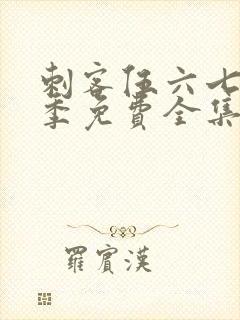 刺客伍六七
季免費全集
羅賓漢